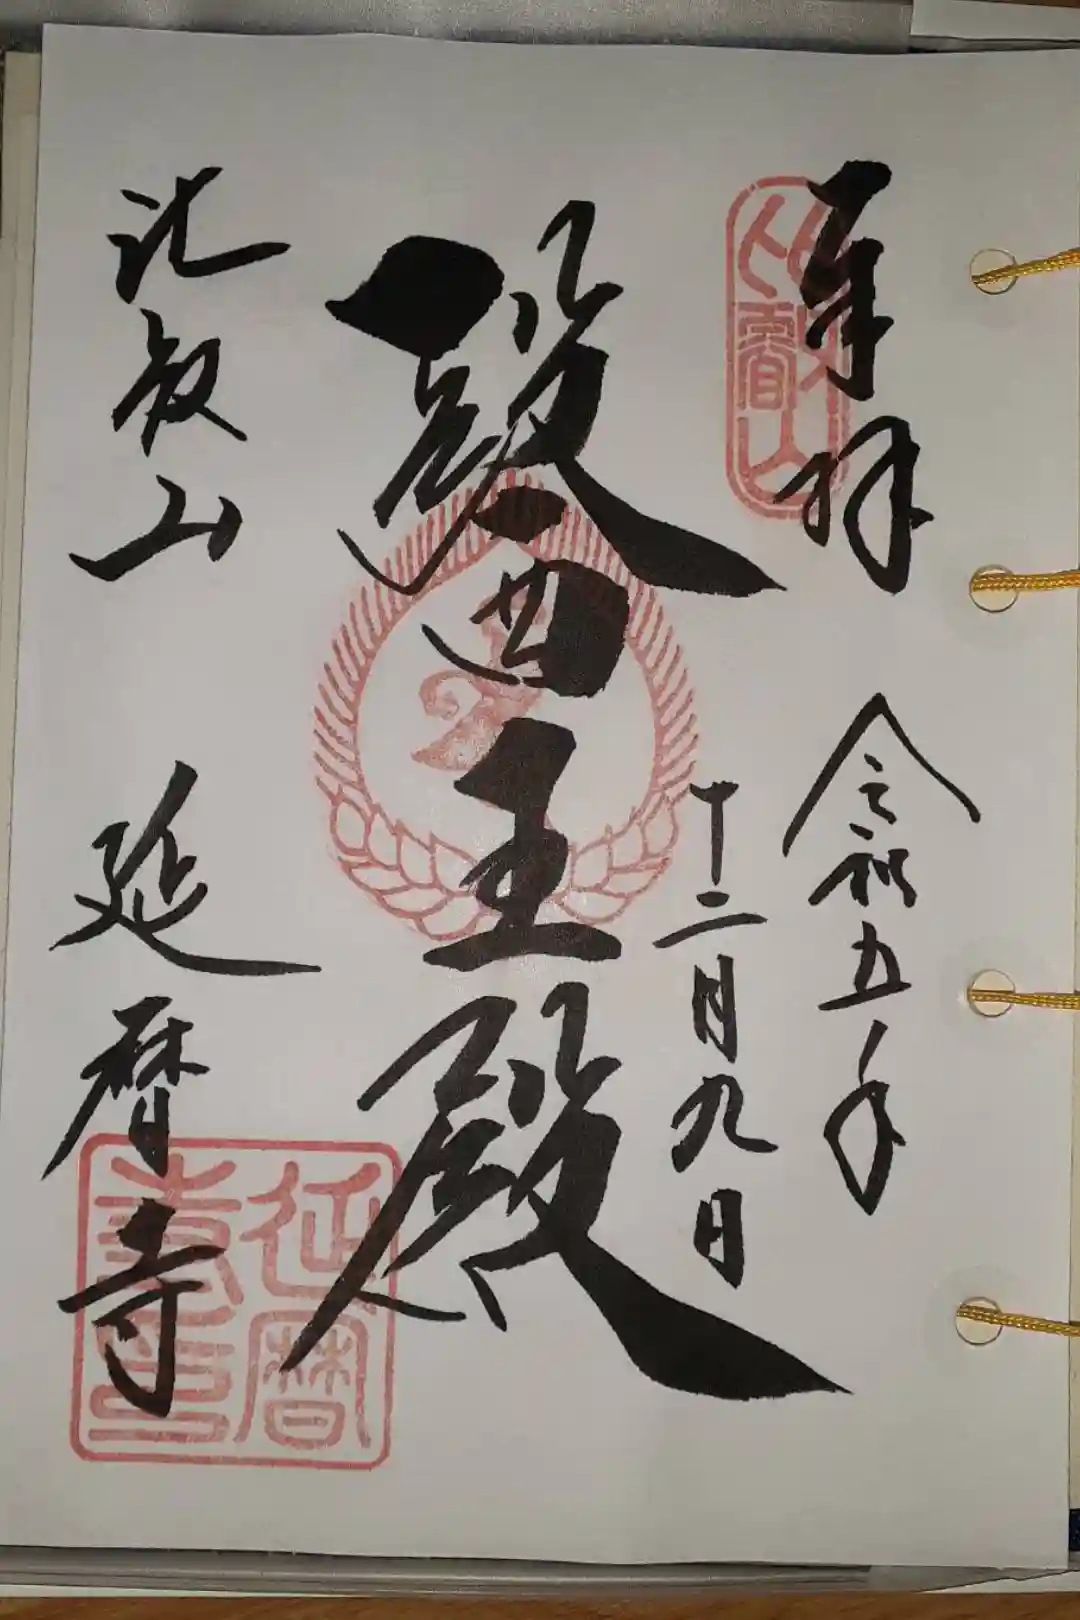 奉拝
令和五年
十二月九日
醫王殿
比叡山
延暦寺
比叡山
延暦